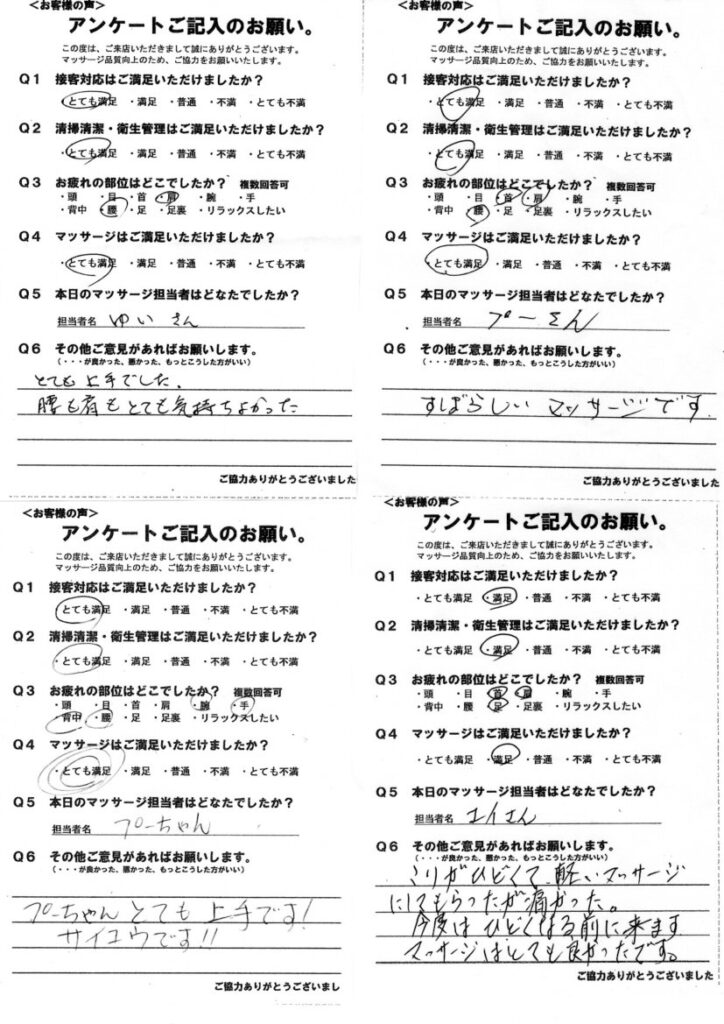 <お客様の声>
アンケートご記入のお願い。
この度は、ご来店いただきまして誠にありがとうございます。
マッサージ品質向上のため、ご協力をお願いいたします。
Q1 接客対応はご満足いただけましたか？
・とても満足 ・満足 ・普通 ・不満 ・とても不満
Q2 清掃清潔・衛生管理はご満足いただけましたか？
・とても満足 ・満足 ・普通 ・不満 ・とても不満
Q3 お疲れの部位はどこでしたか？ 複数回答可
・頭 ・目 ・首 ・肩 ・腕 ・手
・背中 ・腰 ・足 ・足裏 ・リラックスしたい
Q4 マッサージはご満足いただけましたか？
・とても満足 ・満足 ・普通 ・不満 ・とても不満
Q5 本日のマッサージ担当者はどなたでしたか？
担当者名 ゆいさん
Q6 その他ご意見があればお願いします。
（・・・が良かった、悪かった、もっとこうした方がいい）
とても上手でした、
腰も肩もとても気持ちよかった
ご協力ありがとうございました
<お客様の声>
アンケートご記入のお願い。
この度は、ご来店いただきまして誠にありがとうございます。
マッサージ品質向上のため、ご協力をお願いいたします。
Q1 接客対応はご満足いただけましたか？
・とても満足 ・満足 ・普通 ・不満 ・とても不満
Q2 清掃清潔・衛生管理はご満足いただけましたか？
・とても満足 ・満足 ・普通 ・不満 ・とても不満
Q3 お疲れの部位はどこでしたか？ 複数回答可
・頭 ・目 ・首 ・肩 ・腕 ・手
・背中 ・腰 ・足 ・足裏 ・リラックスしたい
Q4 マッサージはご満足いただけましたか？
・とても満足 ・満足 ・普通 ・不満 ・とても不満
Q5 本日のマッサージ担当者はどなたでしたか？
担当者名 プーさん
Q6 その他ご意見があればお願いします。
（・・・が良かった、悪かった、もっとこうした方がいい）
すばらしい マッサージです.
ご協力ありがとうございました
<お客様の声>
アンケートご記入のお願い。
この度は、ご来店いただきまして誠にありがとうございます。
マッサージ品質向上のため、ご協力をお願いいたします。
Q1 接客対応はご満足いただけましたか？
・とても満足 ・満足 ・普通 ・不満 ・とても不満
Q2 清掃清潔・衛生管理はご満足いただけましたか？
・とても満足 ・満足 ・普通 ・不満 ・とても不満
Q3 お疲れの部位はどこでしたか？ 複数回答可
・頭 ・目 ・首 ・肩 ・腕 ・手
・背中 ・腰 ・足 ・足裏 ・リラックスしたい
Q4 マッサージはご満足いただけましたか？
・とても満足 ・満足 ・普通 ・不満 ・とても不満
Q5 本日のマッサージ担当者はどなたでしたか？
担当者名 プーちゃん
Q6 その他ご意見があればお願いします。
（・・・が良かった、悪かった、もっとこうした方がいい）
プーちゃん とても 上手です！
サイコウです!!
ご協力ありがとうございまし
<お客様の声>
アンケートご記入のお願い。
この度は、ご来店いただきまして誠にありがとうございます。
マッサージ品質向上のため、ご協力をお願いいたします。
Q1 接客対応はご満足いただけましたか？
・とても満足 ・満足 ・普通 ・不満 ・とても不満
Q2 清掃清潔・衛生管理はご満足いただけましたか？
・とても満足 ・満足 ・普通 ・不満 ・とても不満
Q3 お疲れの部位はどこでしたか？ 複数回答可
・頭 ・目 ・首 ・肩 ・腕 ・手
・背中 ・腰 ・足 ・足裏 ・リラックスしたい
Q4 マッサージはご満足いただけましたか？
・とても満足 ・満足 ・普通 ・不満 ・とても不満
Q5 本日のマッサージ担当者はどなたでしたか？
担当者名 エイさん
Q6 その他ご意見があればお願いします。
（・・・が良かった、悪かった、もっとこうした方がいい）
こりがひどくて、軽いマッサージ
にしてもらったが痛かった。
今度はひどくなる前に来ます
マッサージはとても良かったです。
ご協力ありがとうございました